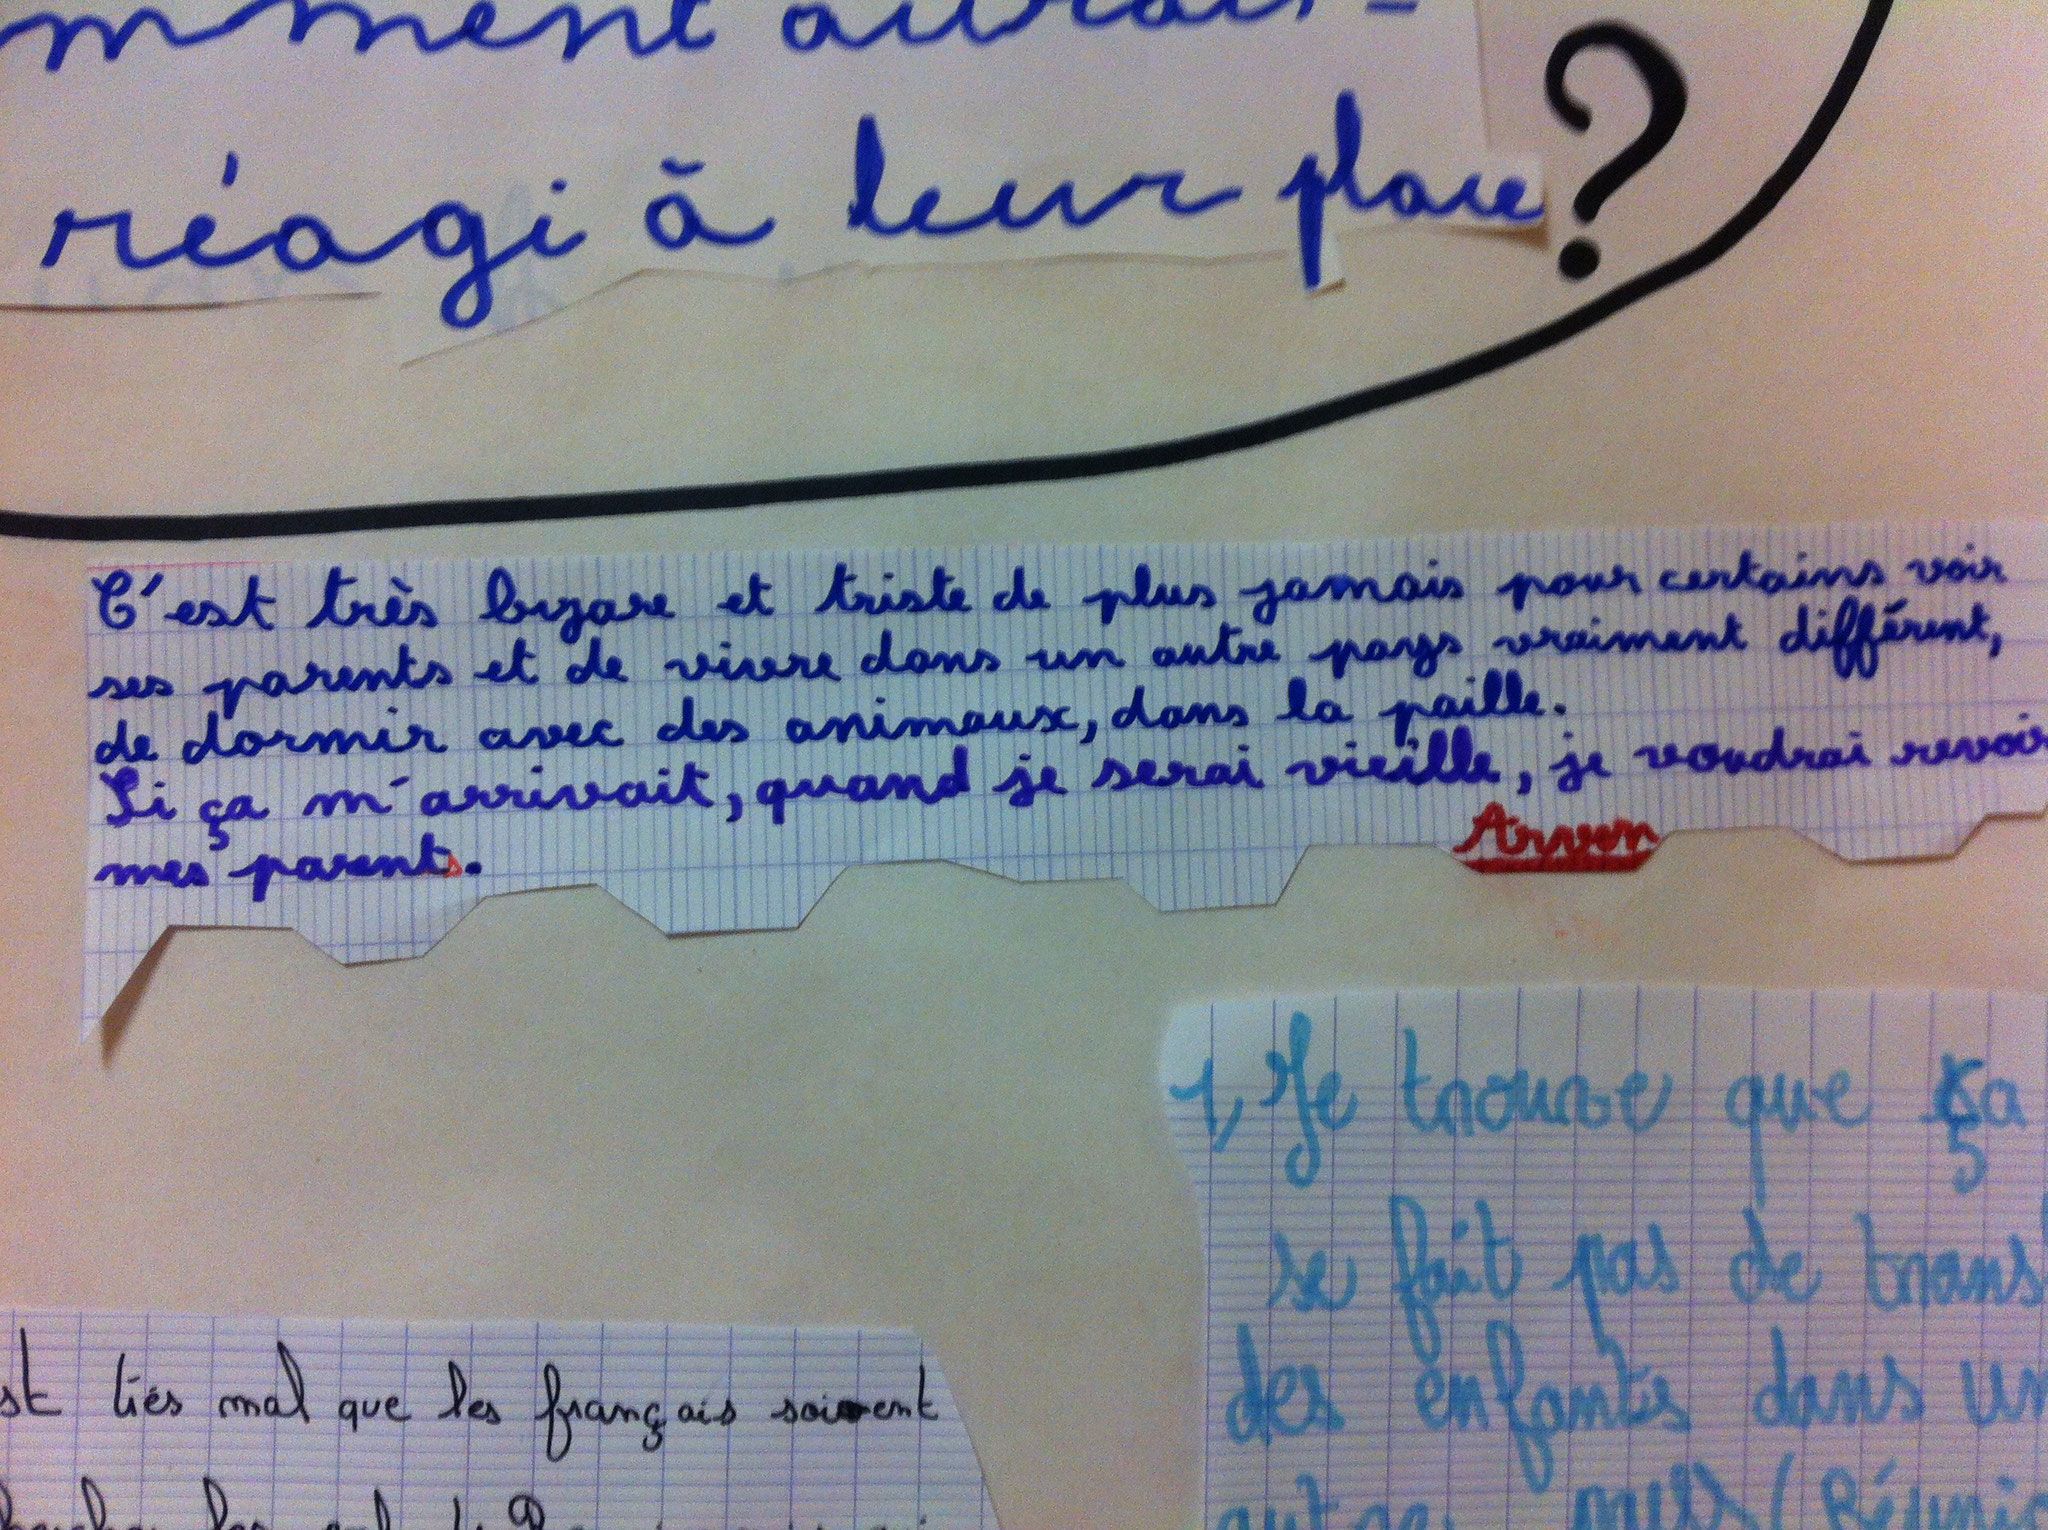 mment aurait-
réagi à leur place ?
C'est très bizare et triste de plus jamais pour certains voir
ses parents et de vivre dans un autre pays vraiment différent,
de dormir avec des animaux, dans la paille.
Si ça m'arrivait, quand je serai vieille, je voudrai revoir
mes parents.
Arwen
1, Je trouve que ça
se fait pas de trans
des enfants dans un
autre pays (Réunio
st très mal que les français soient